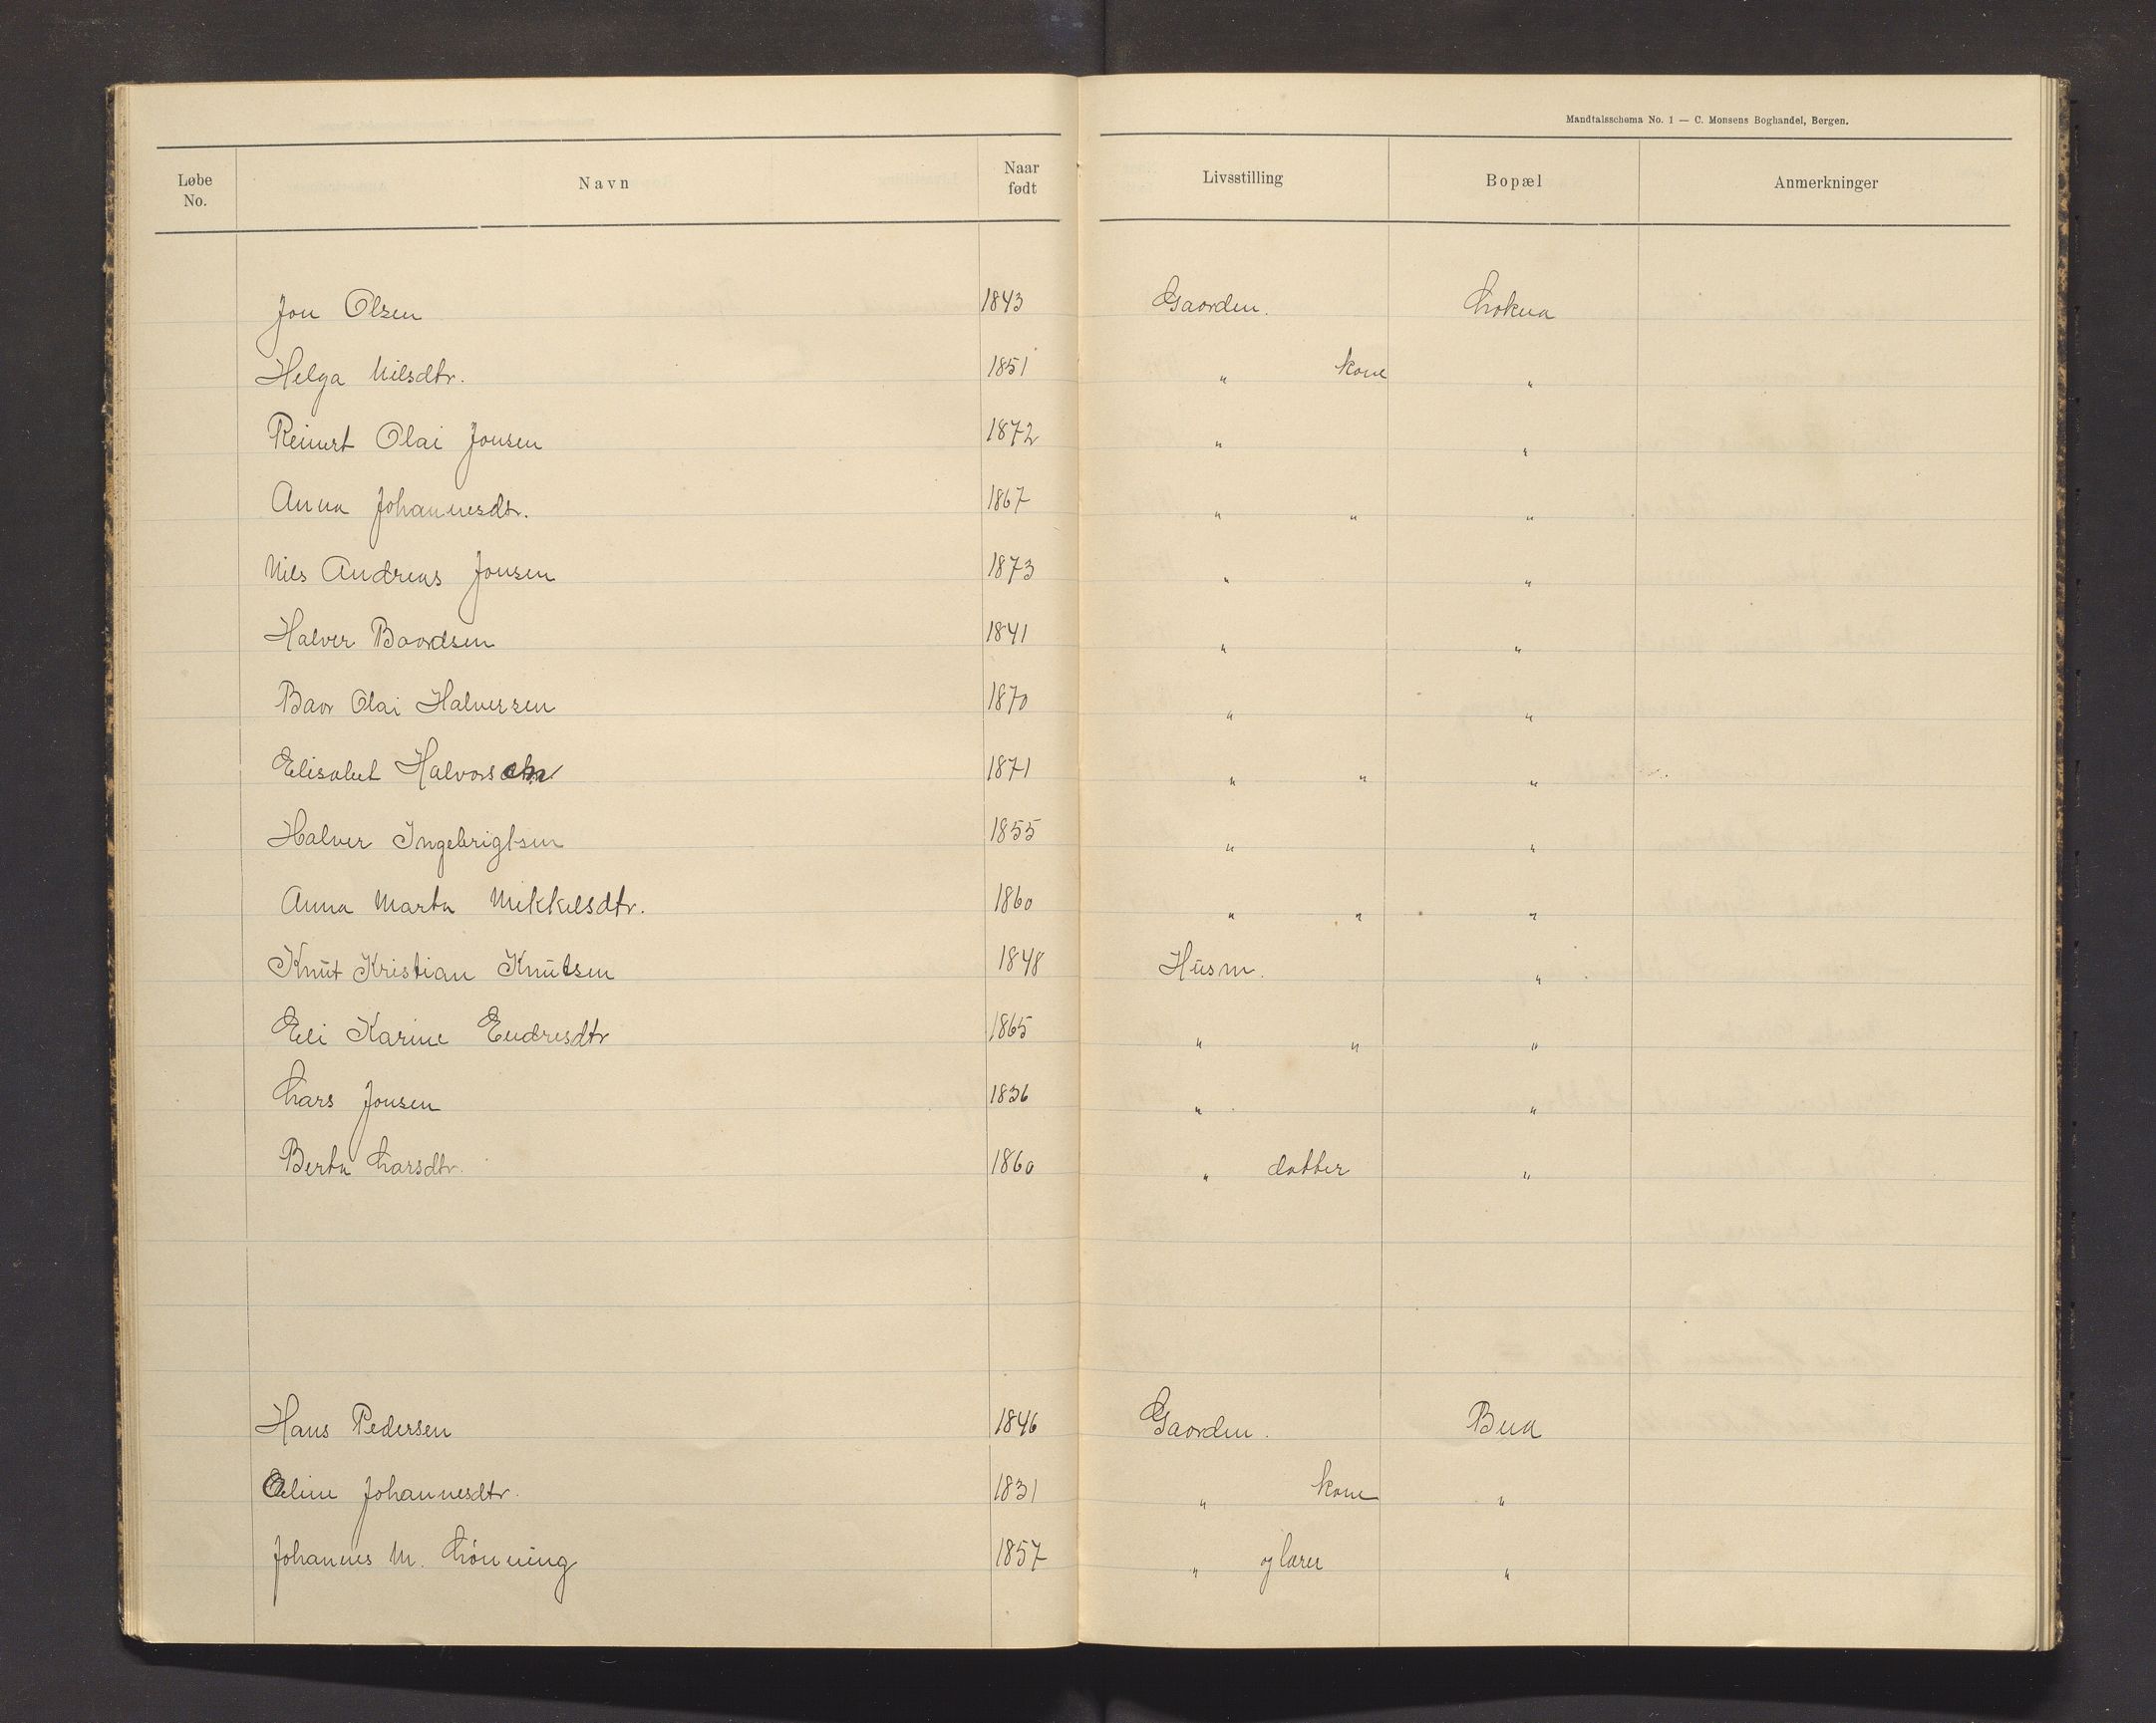 Mandtalsschema No. 1 — C. Monsens Boghandel, Bergen.
Løbe No. Navn Naar født Livsstilling Bopæl Anmerkninger
Jon Olsen 1843 Gaorden. Lokna
Helga Nilsdtr. 1851 " kone "
Reinert Olai Jonsen 1872 " "
Anna Johannesdtr. 1867 " " "
Nils Andreas Jonsen 1873 " "
Halver Baordsen 1841 " "
Baor Olai Halversen 1870 " "
Elisabet Halvors 1871 " " "
Halver Ingebrigtsen 1855 " "
Anna Marta Mikkelsdtr. 1860 " " "
Knut Kristian Knutsen 1848 Husm. "
Eli Karine Endresdtr 1865 " " "
Lars Jonsen 1836 " "
Berta Larsdtr. 1860 " datter "
Hans Pedersen 1846 Gaorden. Bua
Oline Johannesdtr. 1831 " kone "
Johannes M. Lönning 1857 " og lærer "